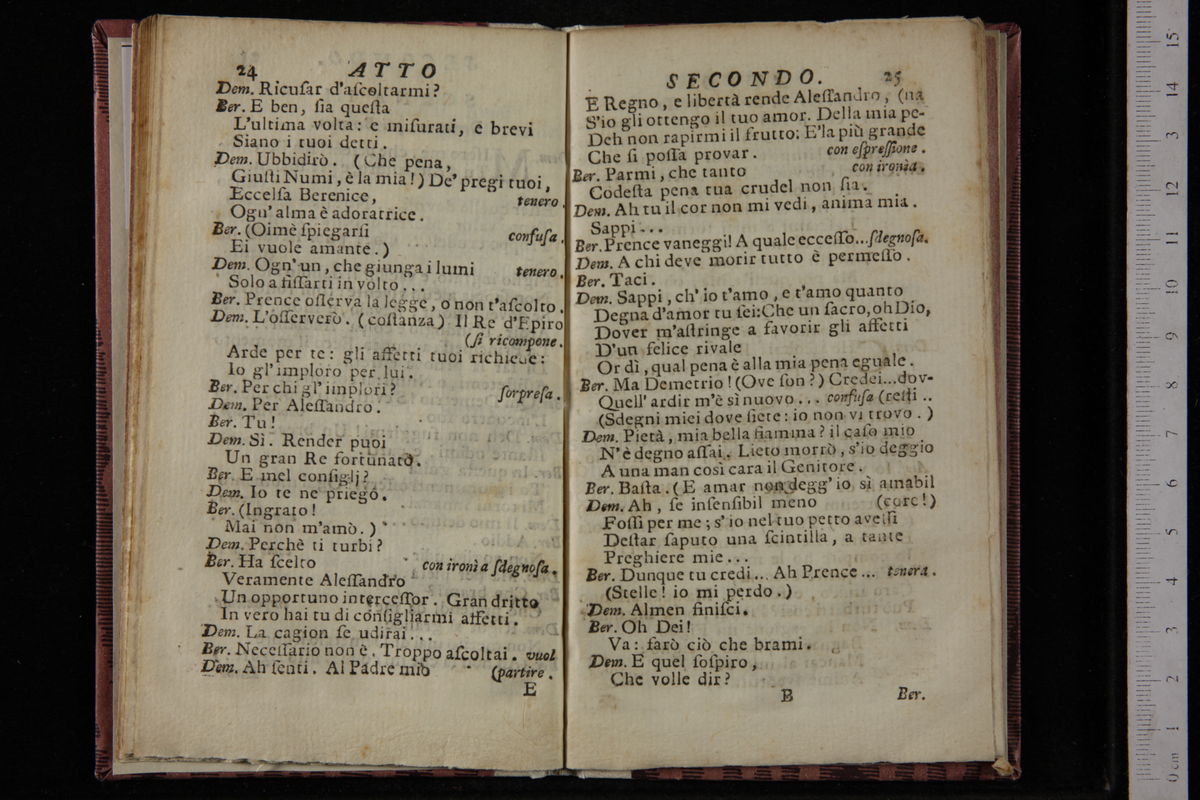 24 ATTO
Dem. Ricuſar d'aſcoltarmi?
Ber. E ben, ſia queſta
L'ultima volta: e miſurati, e brevi
Siano i tuoi detti.
Dem. Ubbidirò. (Che pena,
Giuſti Numi, è la mia!) De' pregi tuoi,
Eccelſa Berenice, tenero.
Ogn' alma è adoratrice.
Ber. (Oimè ſpiegarſi confuſa.
Ei vuole amante.)
Dem. Ogn' un, che giunga i lumi tenero.
Solo a fiſſarti in volto...
Ber. Prence oſſerva la legge, o non t'aſcolto.
Dem. L'oſſerverò. (coſtanza) Il Re d'Epiro
(ſi ricompone.
Arde per te: gli affetti tuoi richiede:
Io gl' imploro per lui.
Ber. Per chi gl' implori? ſorpreſa.
Dem. Per Aleſſandro.
Ber. Tu!
Dem. Sì. Render puoi
Un gran Re fortunato.
Ber. E mel conſiglj?
Dem. Io te ne priego.
Ber. (Ingrato!
Mai non m'amò.)
Dem. Perchè ti turbi?
Ber. Ha ſcelto con ironìa ſdegnoſa.
Veramente Aleſſandro
Un opportuno interceſſor. Gran dritto
In vero hai tu di conſigliarmi affetti.
Dem. La cagion ſe udirai...
Ber. Neceſſario non è. Troppo aſcoltai. vuol
Dem. Ah ſenti. Al Padre mio (partire.
E
SECONDO. 25
E Regno, e libertà rende Aleſſandro, (na
S'io gli ottengo il tuo amor. Della mia pe-
Deh non rapirmi il frutto: E'la più grande
Che ſi poſſa provar. con eſpreſſione.
Ber. Parmi, che tanto con ironìa.
Codeſta pena tua crudel non ſia.
Dem. Ah tu il cor non mi vedi, anima mia.
Sappi...
Ber. Prence vaneggi! A quale ecceſſo...ſdegnoſa.
Dem. A chi deve morir tutto è permeſſo.
Ber. Taci.
Dem. Sappi, ch' io t'amo, e t'amo quanto
Degna d'amor tu ſei: Che un ſacro, oh Dio,
Dover m'aſtringe a favorir gli affetti
D'un felice rivale
Or dì, qual pena è alla mia pena eguale.
Ber. Ma Demetrio! (Ove ſon?) Credei...dov-
Quell' ardir m'è sì nuovo... confuſa (reſti ..
(Sdegni miei dove ſiete: io non vi trovo.)
Dem. Pietà, mia bella fiamma? il caſo mio
N'è degno aſſai. Lieto morrò, s'io deggio
A una man così cara il Genitore.
Ber. Baſta. (E amar non degg' io sì amabil
Dem. Ah, ſe inſenſibil meno (core!)
Foſſi per me; s' io nel tuo petto aveſſi
Deſtar ſaputo una ſcintilla, a tante
Preghiere mie...
Ber. Dunque tu credi... Ah Prence... tenera.
(Stelle! io mi perdo.)
Dem. Almen finiſci.
Ber. Oh Dei!
Va: farò ciò che brami.
Dem. E quel ſoſpiro,
Che volle dir?
B Ber.
0 cm 1 2 3 4 5 6 7 8 9 10 11 12 13 14 15